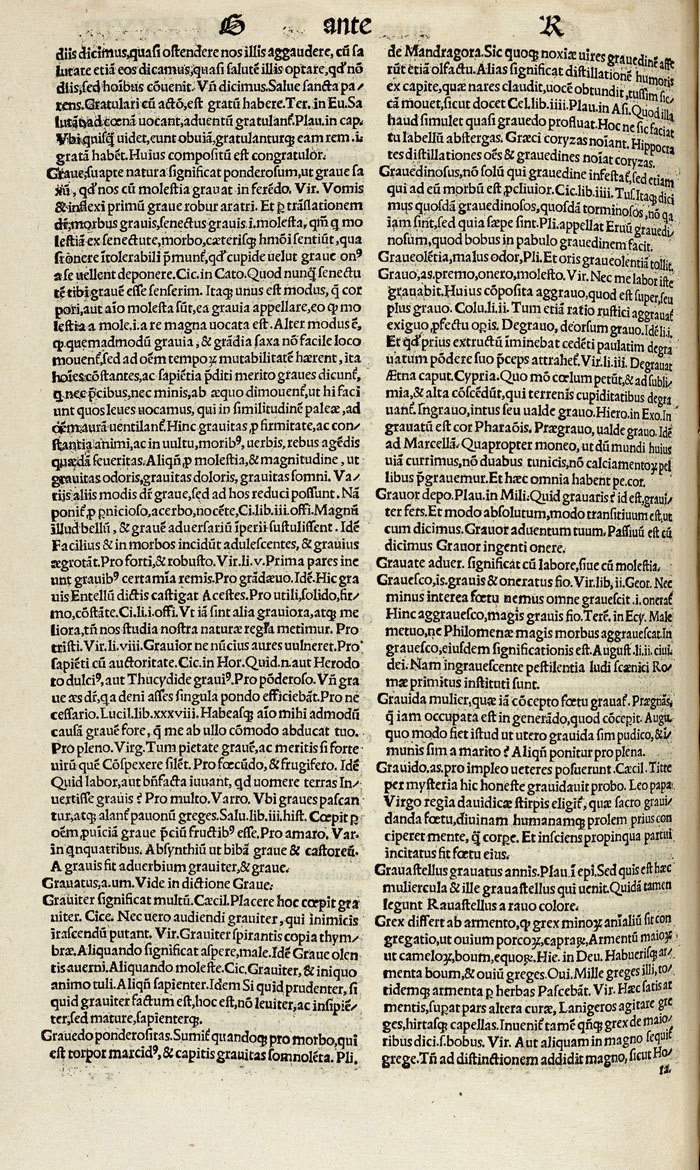 G ante R
diis dicimus,quasi ostendere nos illis aggaudere, cū sa
lutare etiā eos dicamus,quasi salutē illis optare,qđ nō
diis,sed hoībus cōuenit. Vñ dicimus.Salue sancta pa/
rens.Gratulari cū acto,est gratū habere.Ter. in Eu.Sa
uocant,aduentū gratulanť.Plau.in cap.
uidet,eunt obuiā,gratulanturq; eam rem .i.
gratā habēt.Huius compositū est congratulor.
Graue,suapte natura significat ponderosum,ut graue sa
xū, qđ nos cū molestia grauat in ferēdo. Vir. Vomis
& inflexi primū graue robur aratri. Et p trāslationem
dr̄,morbus grauis,senectus grauis i.molesta, qm̄ q mo
lestiā ex senectute,morbo,cæterisq; hmōi sentiūt, qua
si ōnere ītolerabili pmunť,qđ cupide uelut graue on⁹
a se uellent deponere.Cic.in Cato.Quod nunq̄ senectu
tē tibi grauē esse senserim. Itaq; unus est modus, q̄ cor
pori,aut aīo molesta sūt,ea grauia appellare,eo q mo
lestia a mole.i.a re magna uocata est. Alter modus ē,
q.quemadmodū grauia, & grādia saxa nō facile loco
mouenť,sed ad oēm tempoꝝ mutabilitatē hærent, ita
hoīes cōstantes,ac sapiētia pditi merito graues dicunť,
q.nec pcibus,nec minis,ab æquo dimouenť,ut hi faci
unt quos leues uocamus, qui in similitudinē paleæ ,ad
aurā uentilanť.Hinc grauitas p firmitate,ac con/
stantia animi,ac in uultu,morib⁹, uerbis, rebus agēdis
quædā seueritas.Aliqñ p molestia,& magnitudine , ut
grauitas odoris,grauitas doloris, grauitas somni. Va/
riis aliis modis dr̄ graue,sed ad hos reduci possunt. Nā
poniť p pnicioso,acerbo,nocēte,Ci.lib.iii.offi.Magnū
illud bellū , & grauē aduersariū īperii sustulissent . Idē
Facilius & in morbos incidūt adulescentes, & grauius
ægrotāt.Pro forti,& robusto. Vir.li.v.Prima pares ine
unt grauib⁹ certamīa remis.Pro grādæuo. Idē.Hic gra
uis Entellū dictis castigat Acestes.Pro utili,solido,fir/
mo,cōstāte. Ci.li.i.offi.Vt iā sint alia grauiora,atq; me
liora,tñ nos studia nostra naturæ regla metimur. Pro
tristi.Vir.li.viii.Grauior ne nūcius aures uulneret.Pro
sapiēti cū auctoritate.Cic.in Hor.Quid.n.aut Herodo
to dulci⁹, aut Thucydide graui⁹.Pro pōderoso. Vñ gra
ue æs dr̄,qa deni asses singula pondo efficiebāt.Pro ne
cessario. Lucil.lib.xxxviii. Habeasq; aīo mihi admodū
causā grauē fore, q̄ me ab ullo cōmodo abducat tuo.
Pro pleno.Virg.Tum pietate grauē,ac meritis si forte
uirū quē Cōspexere silēt. Pro fœcūdo,& frugifero. Idē
Quid labor,aut bñfacta iuuant, qd uomere terras In/
uertisse grauis ? Pro multo.Varro. Vbi graues pascan
tur,atq; alanť pauonū greges.Salu.lib.iii.hist. Cœpit p
oēm puīciā graue pciū fructib⁹ esse.Pro amaro, Var.
in qnquatribus. Absynthiū ut bibā graue & castoreū.
A grauis fit aduerbium grauiter,& graue.
Grauatus,a.um.Vide in dictione Graue.
Grauiter significat multū.Cæcil.Placere hoc cœpit gra
uiter. Cice. Nec uero audiendi grauiter , qui inimicis
īrascendū putant. Vir.Grauiter spirantis copia thym/
bræ.Aliquando significat aspere,male.Idē Graue olen
tis auerni.Aliquando moleste.Cic.Grauiter, & iniquo
animo tuli.Aliqñ sapienter.Idem Si quid prudenter, si
quid grauiter factum est,hoc est,nō leuiter, ac insipiē/
ter,sed mature,sapienterq;.
Grauedo ponderositas.Sumiť quandoq; pro morbo,qui
est torpor marcid⁹, & capitis grauitas somnolēta. Pli.
de Mandragora.Sic quoq; noxiæ uires grauedinē affe
rūt etiā olfactu. Alias significat distillationē humoris
ex capite, quæ nares claudit,uocē obtundit,tussim sic/
cā mouet,sicut docet Cel.lib.iiii.Plau.in Asi.Quod illa
haud simulet quasi grauedo profluat.Hoc ne sic faciat
tu labellū abstergas. Græci coryzas noīant. Hippocra
tes distillationes oēs & grauedines noīat coryzas.
Grauedinosus,nō solū qui grauedine infestať,sed etiam
qui ad eū morbū est pcliuior.Cic.lib.iiii. Tus.Itaq; dici
mus quosdā grauedinosos,quosdā torminosos,nō qa
iam sint,sed quia sæpe sint.Pli.appellat Eruū grauedi/
nosum,quod bobus in pabulo grauedinem facit.
Graueolētia,malus odor,Pli.Et oris graueolentiā tollit.
Grauo,as.premo,onero,molesto. Vir. Nec me labor iste
grauabit.Huius cōposita aggrauo,quod est super,seu
plus grauo. Colu.li.ii. Tum etiā ratio rustici aggrauať
exiguo pfectu opis. Degrauo, deorsum grauo. Idē li.i.
Et qđ prius extructū iminebat cedēti paulatim degra
uatum pōdere suo pceps attrahet. Vir.li.iii. Degrauat
Ætna caput.Cypria.Quo mō cœlum petūt,& ad subli/
mia,& alta cōscēdūt,qui terrenis cupiditatibus degra
uanť.Ingrauo,intus seu ualde grauo.Hiero.in Exo.In/
grauatū est cor Pharaōis. Prægrauo, ualde grauo. Idē
ad Marcellā. Quapropter moneo, ut dū mundi huius
uiā currimus,nō duabus tunicis,nō calciamentoꝝ pel
libus pgrauemur.Et hæc omnia habent pe.cor.
Grauor depo.Plau.in Mili.Quid grauaris? id est,graui/
ter fers.Et modo absolutum,modo transitiuum est,ut
cum dicimus.Grauor aduentum tuum. Passiuū est cū
dicimus Grauor ingenti onere.
Grauate aduer. significat cū labore,siue cū molestia.
Grauesco,is.grauis & oneratus fio. Vir.lib,ii.Geor. Nec
minus interea fœtu nemus omne grauescit .i. onerať
Hinc aggrauesco,magis grauis fio.Terē.in Ecy. Male
metuo,ne Philomenæ magis morbus aggrauescat.In
grauesco,eiusdem significationis est.August.li.ii.ciui.
dei. Nam ingrauescente pestilentia ludi scænici Ro/
mæ primitus instituti sunt.
Grauida mulier,quæ iā cōcepto fœtu grauať. Prægnās,
q̄ iam occupata est in generādo,quod cōcepit. Augu.
quo modo fiet istud ut utero grauida sim pudico,& i/
munis sim a marito ? Aliqñ ponitur pro plena.
Grauido.as.pro impleo ueteres posuerunt.Cæcil. Titte
per mysteria hic honeste grauidauit probo. Leo papa.
Virgo regia dauidicæ stirpis eligiť, quæ sacro graui/
danda fœtu,diuinam humanamq; prolem prius con
ciperet mente, q̄ corpe. Et insciens propinqua partui
incitatus fit fœtu eius.
Grauastellus grauatus annis.Plau.ī epi.Sed quis est hæc
muliercula & ille grauastellus qui uenit.Quidā tamen
legunt Rauastellus a rauo colore.
Grex differt ab armento,q grex minoꝝ anīaliū sit con
gregatio,ut ouium porcoꝝ,capraꝝ,Armentū maioꝝ
ut cameloꝝ,boum,equoꝝ.Hie. in Deu. Habuerisq; ar
menta boum,& ouiū greges.Oui.Mille greges illi,to/
tidemq; armenta p herbas Pascebāt. Vir. Hæc satis ar
mentis,supat pars altera curæ, Lanigeros agitare gre
ges,hirtasq; capellas. Inueniť tamē qñq; grex de maio/
ribus dici.s.bobus. Vir. Aut aliquam in magno sequiť
grege.Tñ ad distinctionem addidit magno, sicut Ho/
ra.